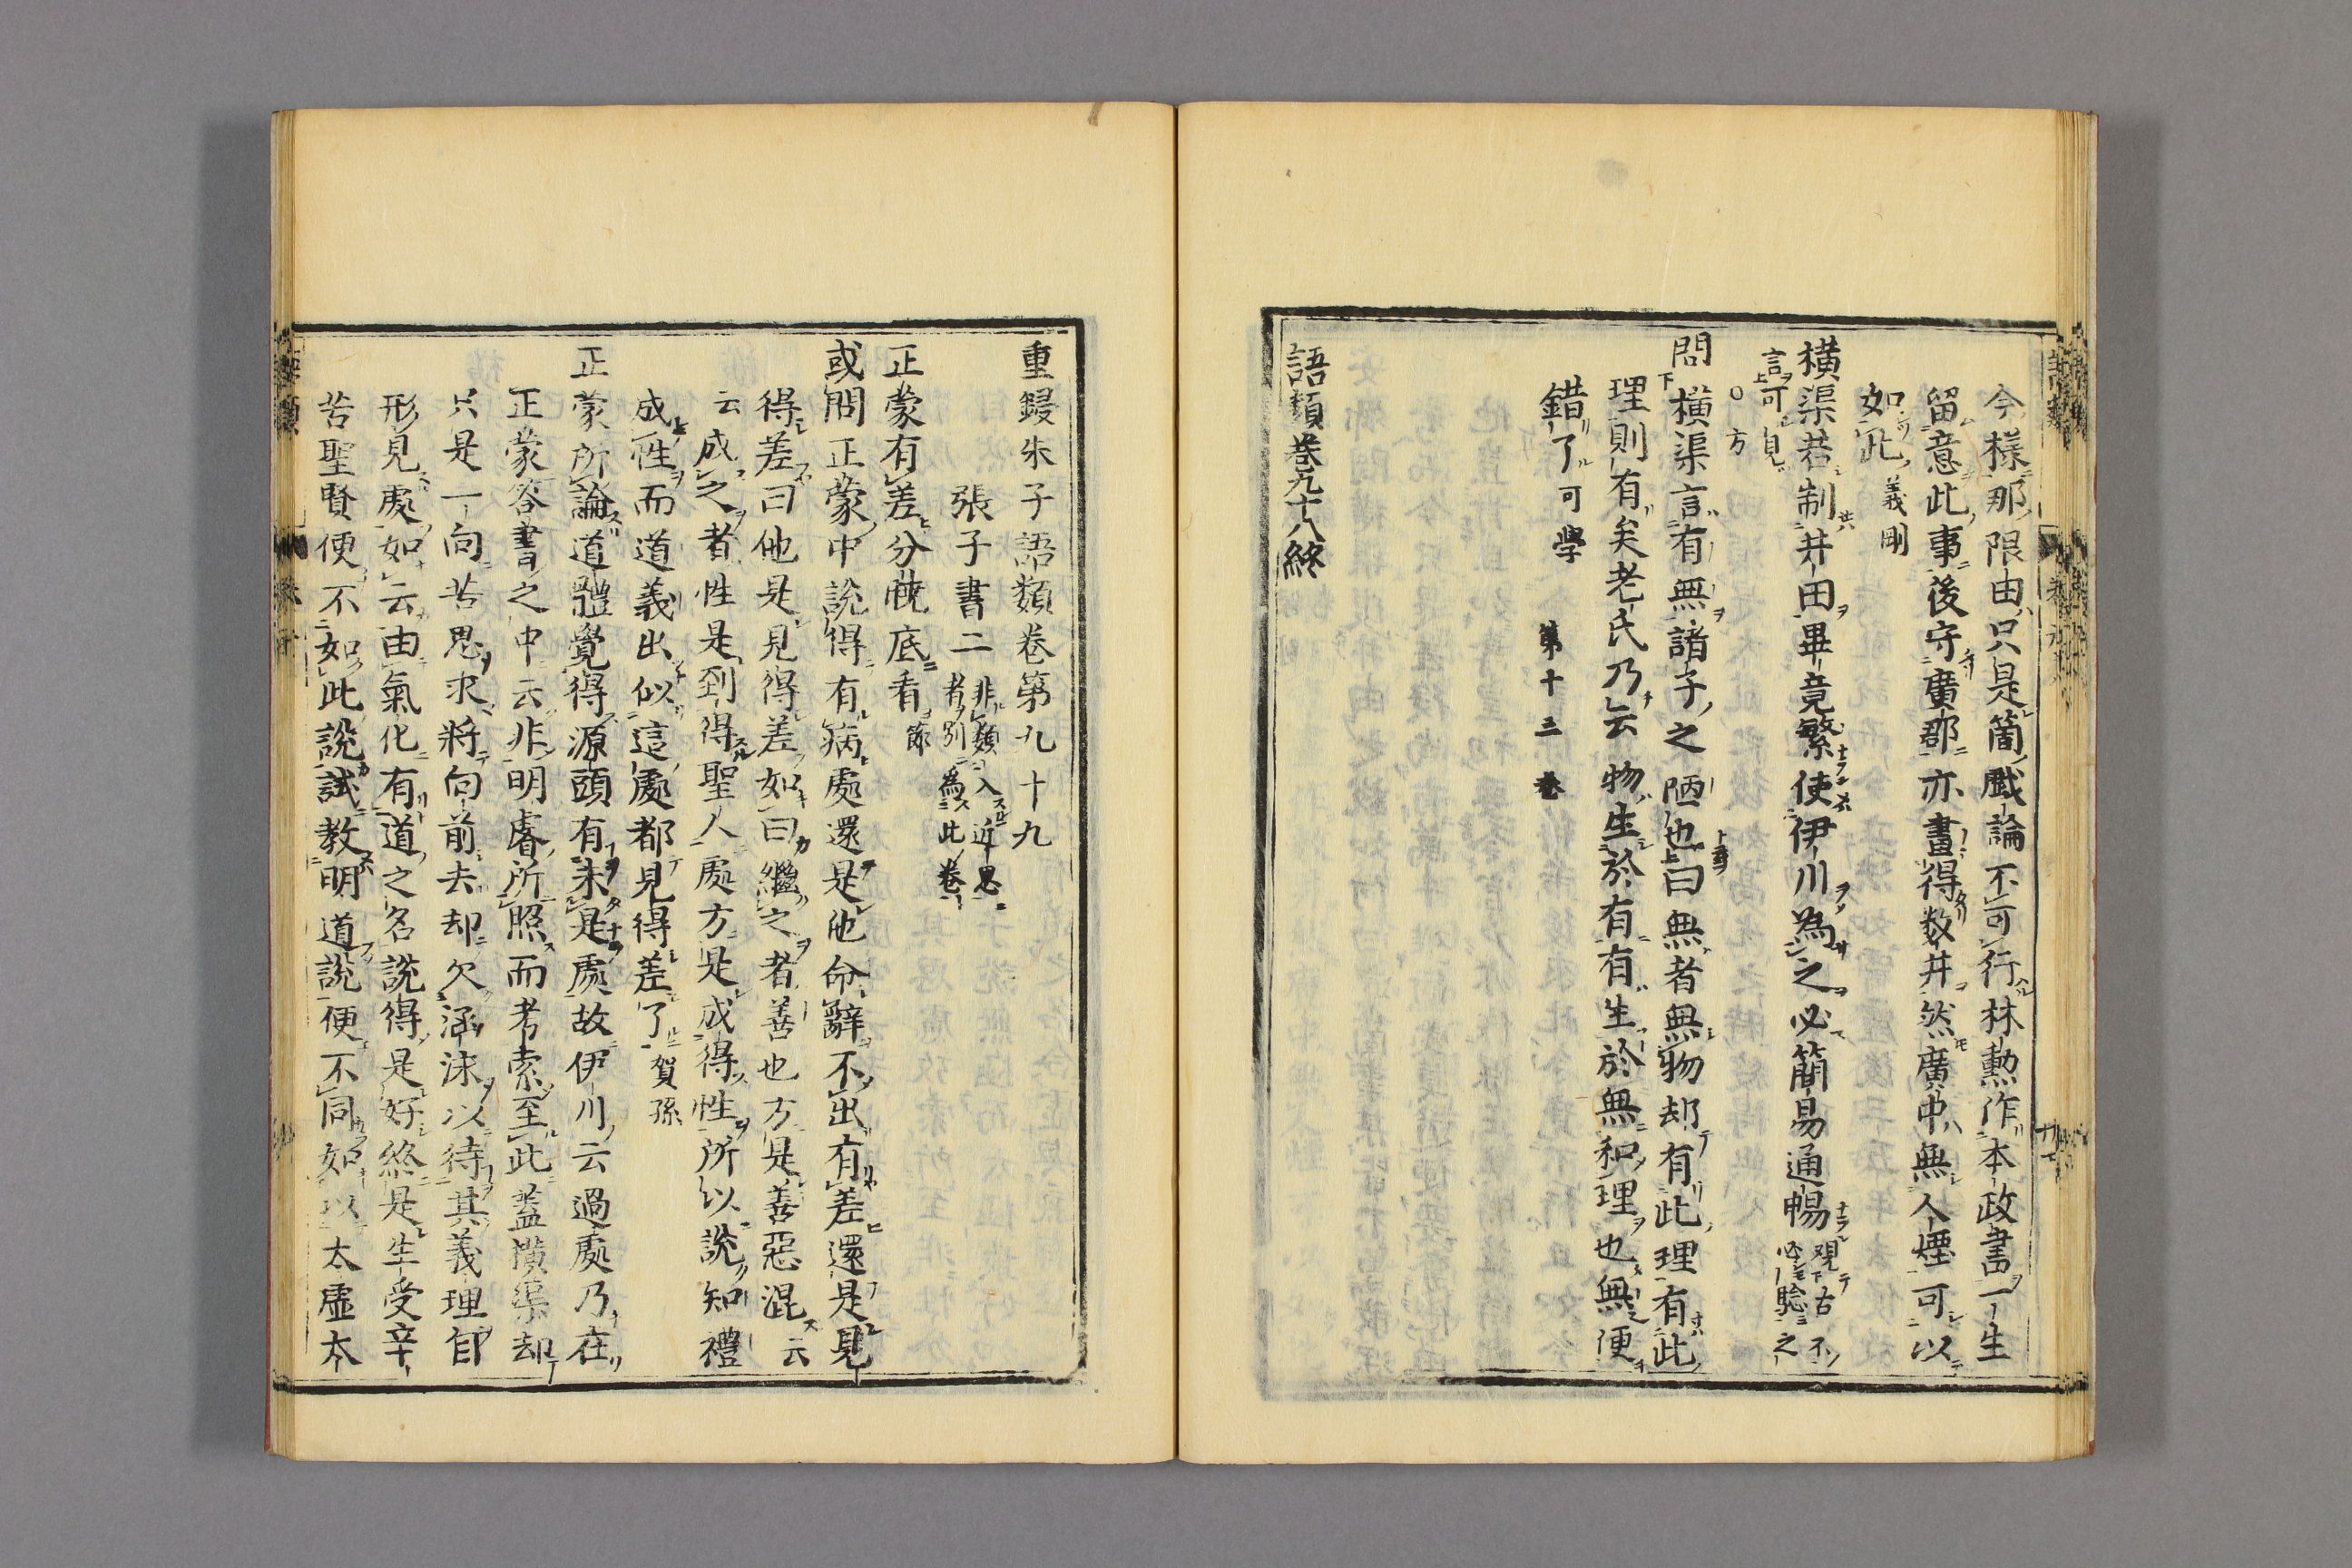 今様那限由只是箇戲論不可行林勲作本政書一生
留意此事後守廣郡亦畫得数井然廣中無人煙可以
如此義剛
横渠若制井田畢竟繁使伊川為之必簡易通暢觀古不
言可見
必驗之
○方
問横渠言有無諸子之陋也曰無者無物却有此理有此
理則有矣老氏乃云物生於有有生於無和理也無便
錯了可學
第十三巻
語類巻九十八終
重鋟朱子語類卷第九十九
張子書二
非類入近思
者別為此卷
正蒙有差分曉底看節
或問正蒙中說得有病處還是他命辭不出有差還是見
得差曰他是見得差如曰繼之者善也方是善惡混云
云成之者性是到得聖人處方是成得性所以說知禮
成性而道義出似這處都見得差了賀孫
正蒙所論道體覺得源頭有未是處故伊川云過處乃在
正蒙答書之中云非明睿所照而考索至此蓋橫渠却
只是一向苦思求將向前去却欠涵泳以待其義理自
形見處如云由氣化有道之名說得是好終是生受辛
苦聖賢便不如此說試教明道說便不同如以太虛太